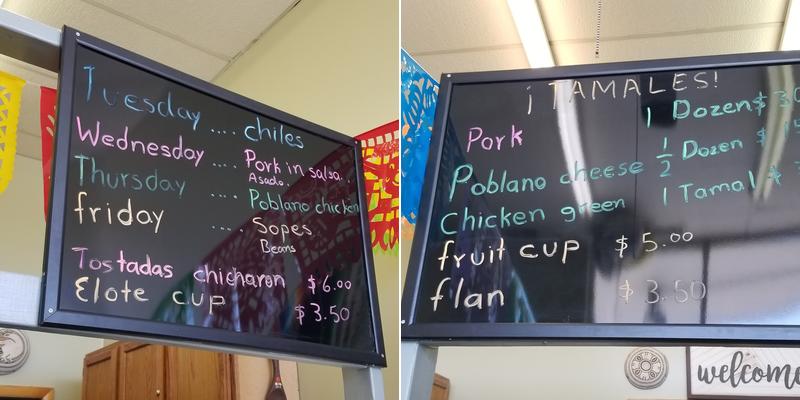 Tuesday .... chiles
Wednesday .... Pork in salsa.
Asado
Thursday .... Poblano chicken
friday .... Sopes
Beans
Tostadas chicharon $6.00
Elote cup $3.50
¡TAMALES!
Pork 1 Dozen $
Poblano cheese 1/2 Dozen $
Chicken green 1 Tamal $
fruit cup $5.00
flan $3.50
welcome